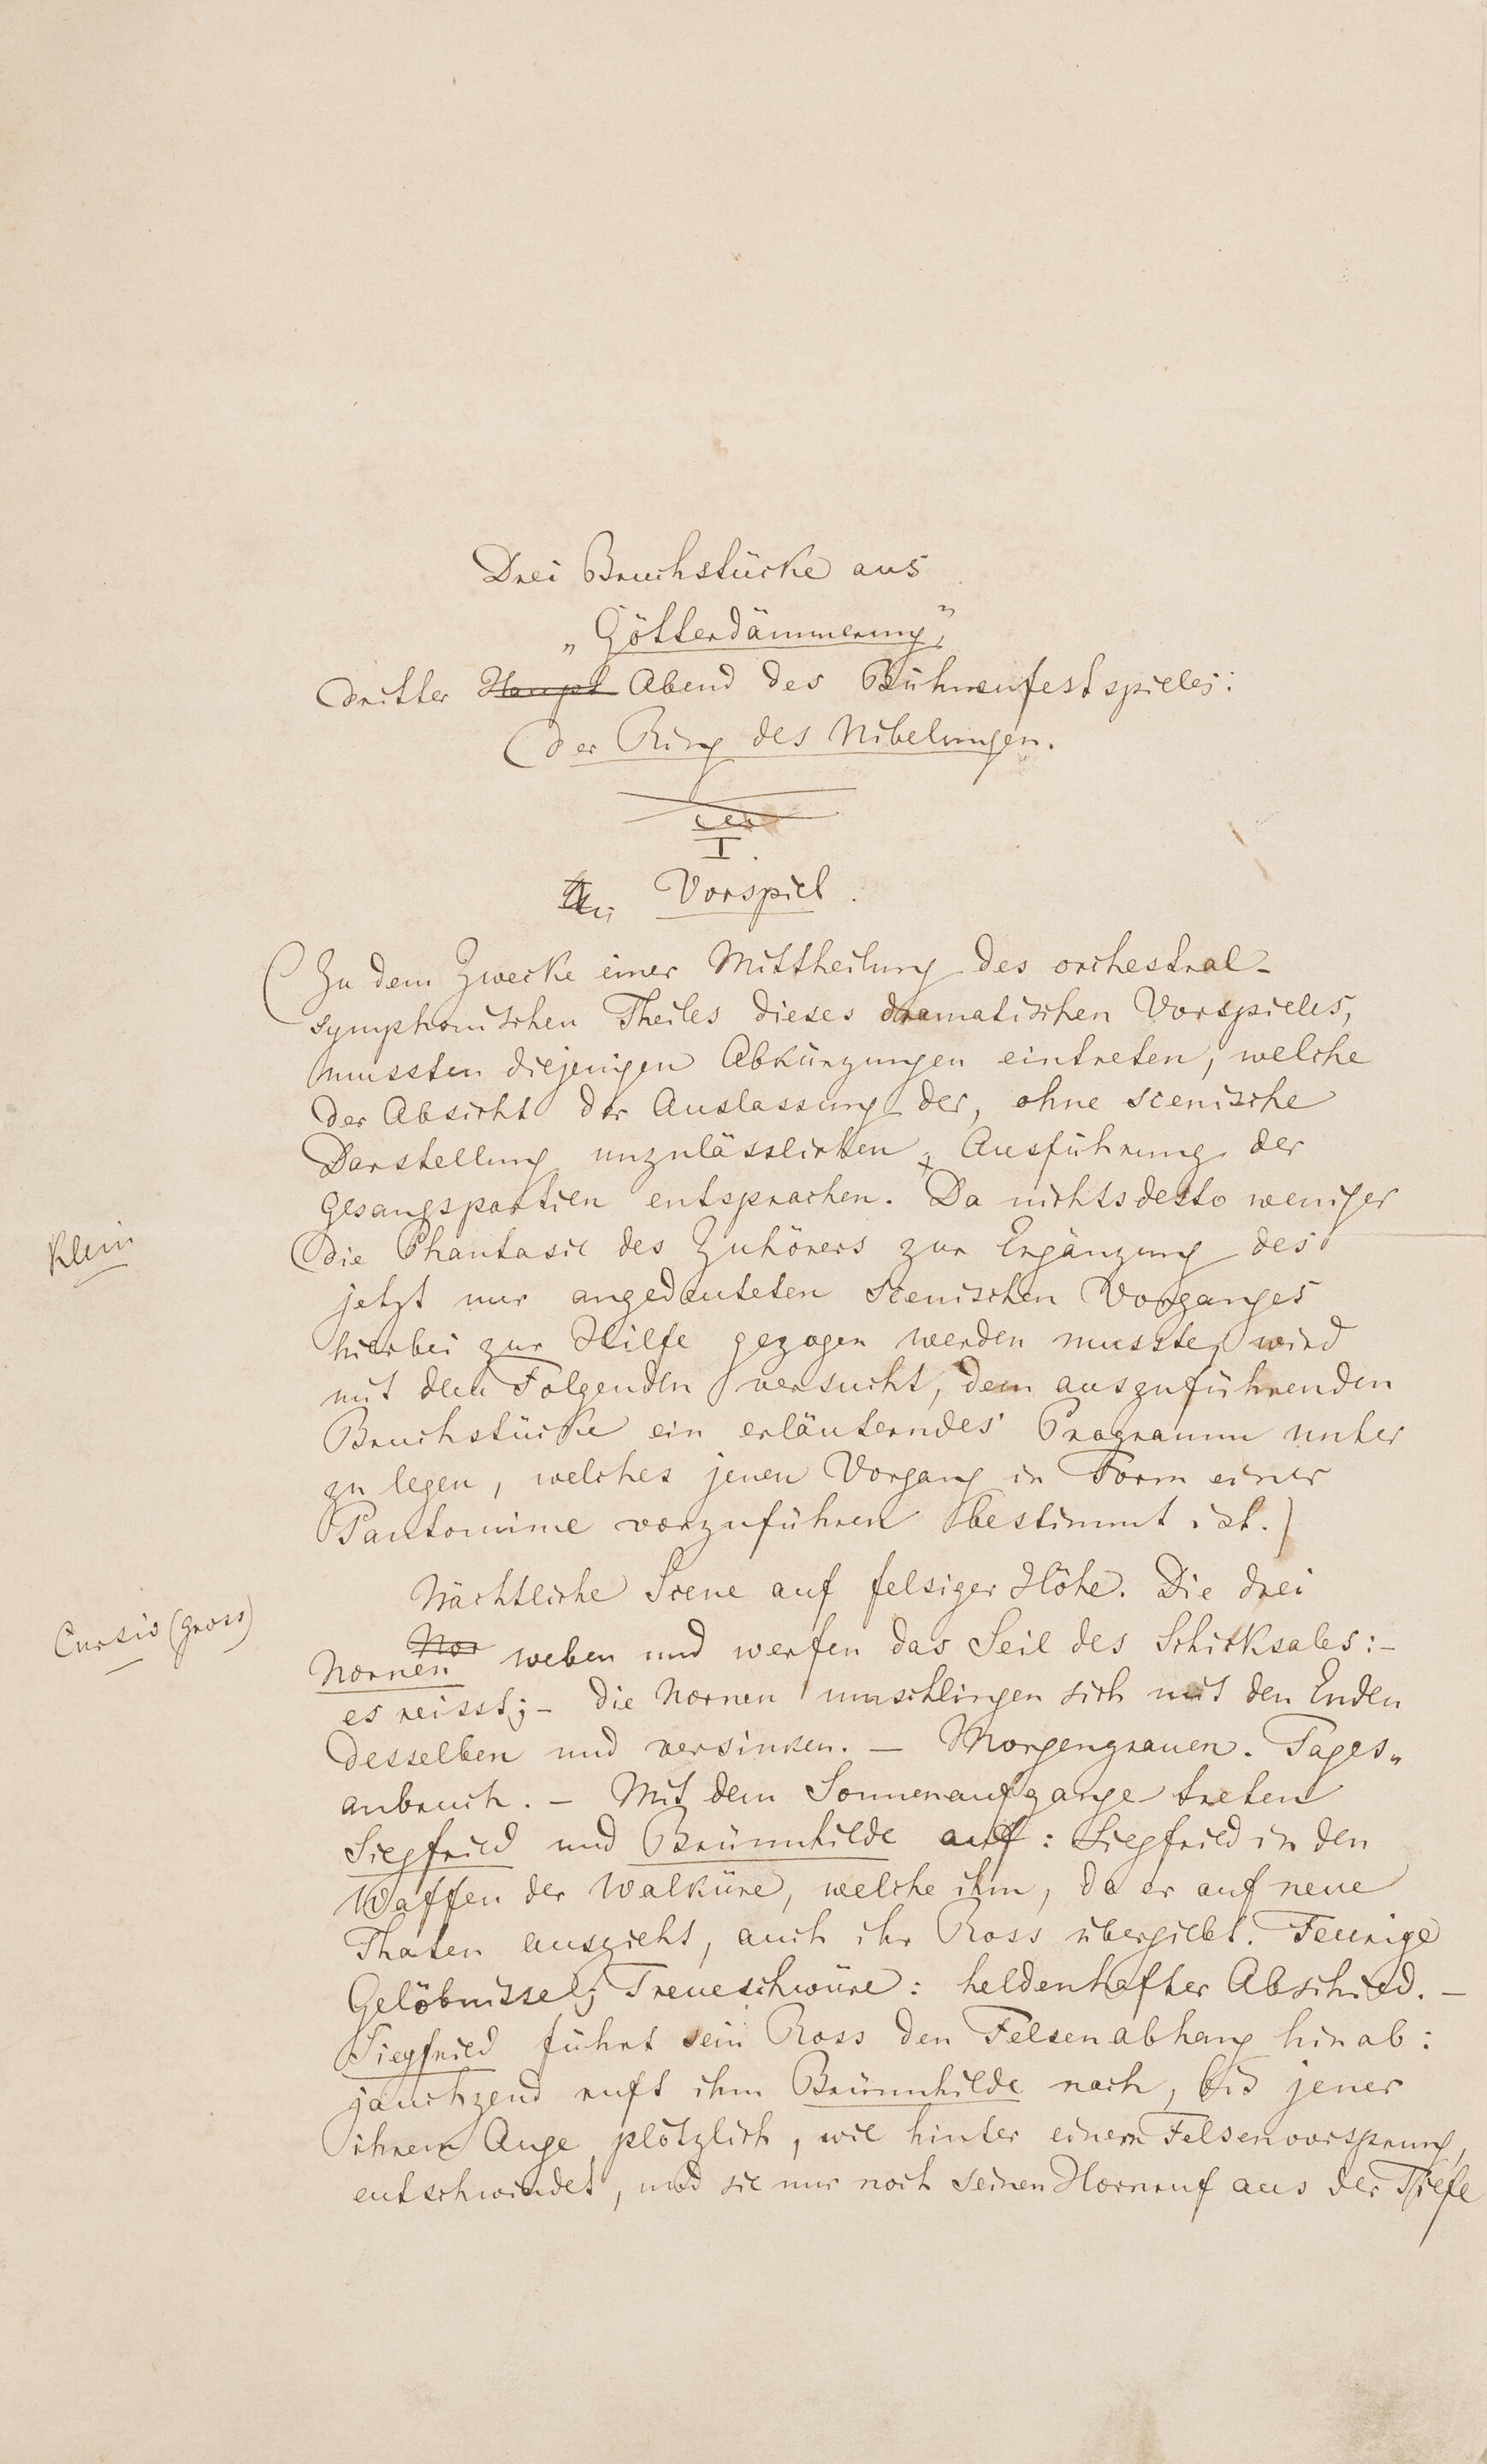 Drei Bruchstücke aus
„Götterdämmerung”,
dritter Haupt Abend des Bühnenfestspieles:
Der Ring des Nibelungen.
I.
Vorspiel.
(Zu dem Zwecke einer Mittheilung des orchestral-
symphonischen Theiles dieses dramatischen Vorspieles,
mussten diejenigen Abkürzungen eintreten, welche
der Absicht der Auslassung der, ohne scenische
Darstellung unzulässlichen, Ausführung der
Gesangspartien entsprachen. Da nichtsdesto weniger
Klein
die Phantasie des Zuhörers zur Ergänzung des
jetzt nur angedeuteten scenischen Vorganges
hierbei zur Hilfe gezogen werden musste, wird
mit dem Folgenden versucht, dem auszuführenden
Bruchstücke ein erläuterndes Programm unter
zu legen, welches jenen Vorgang in Form einer
Pantomime vorzuführen bestimmt ist.)
Nächtliche Scene auf felsiger Höhe. Die drei
Cursiv (gross)
Nor Nornen weben und werfen das Seil des Schicksales:-
es reisst;- die Nornen umschlingen sich mit den Enden
desselben und versinken. — Morgengrauen. Tages„
anbruch. — Mit dem Sonnenaufgange treten
Siegfried und Brünnhilde auf: Siegfried in den
Waffen der Walküre, welche ihm, da er auf neue
Thaten auszieht, auch ihr Ross übergiebt. Feurige
Gelöbnisse; Treueschwüre: heldenhafter Abschied. —
Siegfried führt sein Ross den Felsenabhang hinab:
jauchzend ruft ihm Brünnhilde nach, bis jener
ihrem Auge plötzlich, wie hinter einem Felsenvorsprung,
entschwindet, und sie nur noch seinen Hornruf aus der Tiefe